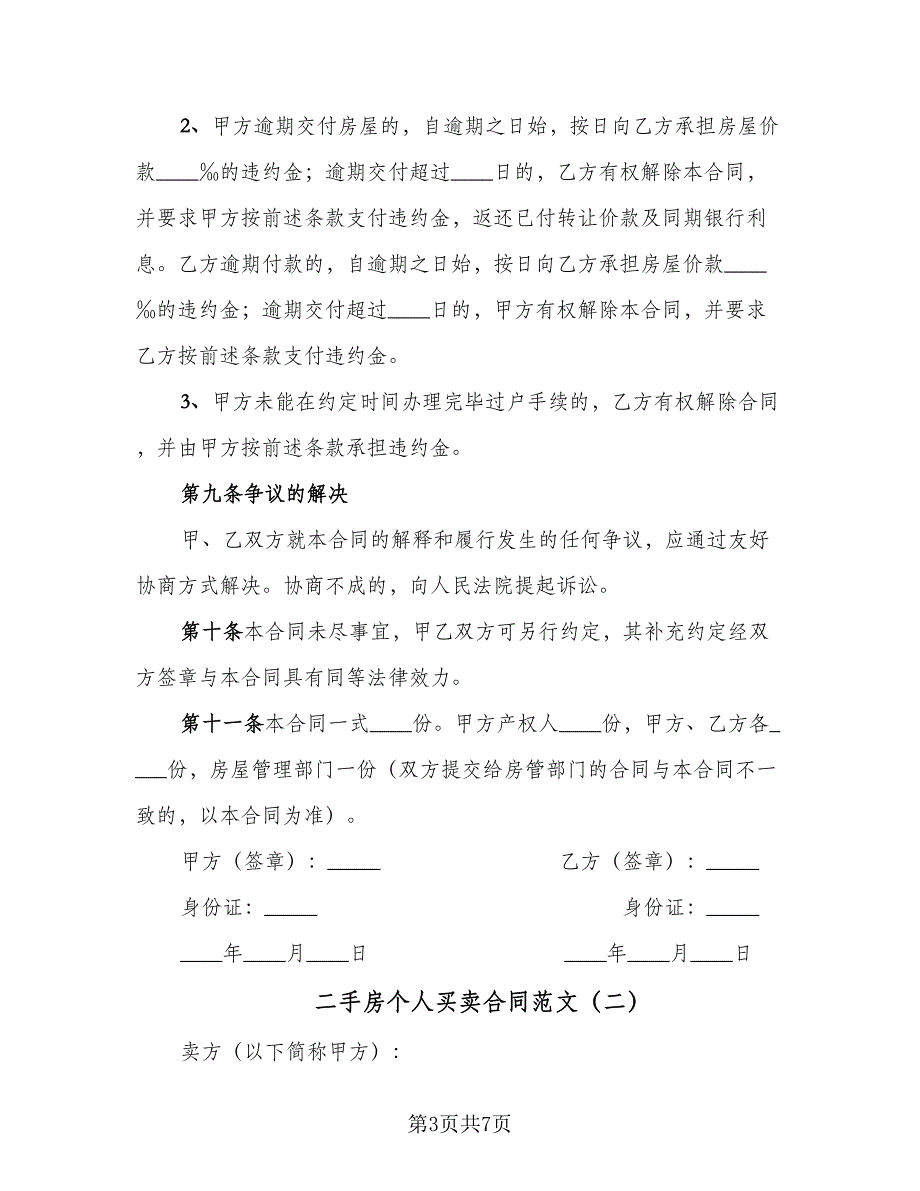 2、甲方逾期交付房屋的，自逾期之日始，按日向乙方承担房屋价
款____‰的违约金；逾期交付超过____日的，乙方有权解除本合同，
并要求甲方按前述条款支付违约金，返还已付转让价款及同期银行利
息。乙方逾期付款的，自逾期之日始，按日向乙方承担房屋价款____
‰的违约金；逾期交付超过____日的，甲方有权解除本合同，并要求
乙方按前述条款支付违约金。
3、甲方未能在约定时间办理完毕过户手续的，乙方有权解除合同
，并由甲方按前述条款承担违约金。
第九条争议的解决
甲、乙双方就本合同的解释和履行发生的任何争议，应通过友好
协商方式解决。协商不成的，向人民法院提起诉讼。
第十条本合同未尽事宜，甲乙双方可另行约定，其补充约定经双
方签章与本合同具有同等法律效力。
第十一条本合同一式____份。甲方产权人____份，甲方、乙方各_
___份，房屋管理部门一份（双方提交给房管部门的合同与本合同不一
致的，以本合同为准）。
甲方（签章）：_____ 乙方（签章）：_____
身份证：_____ 身份证：_____
____年____月____日 ____年____月____日
二手房个人买卖合同范文（二）
卖方（以下简称甲方）：
第3页共7页